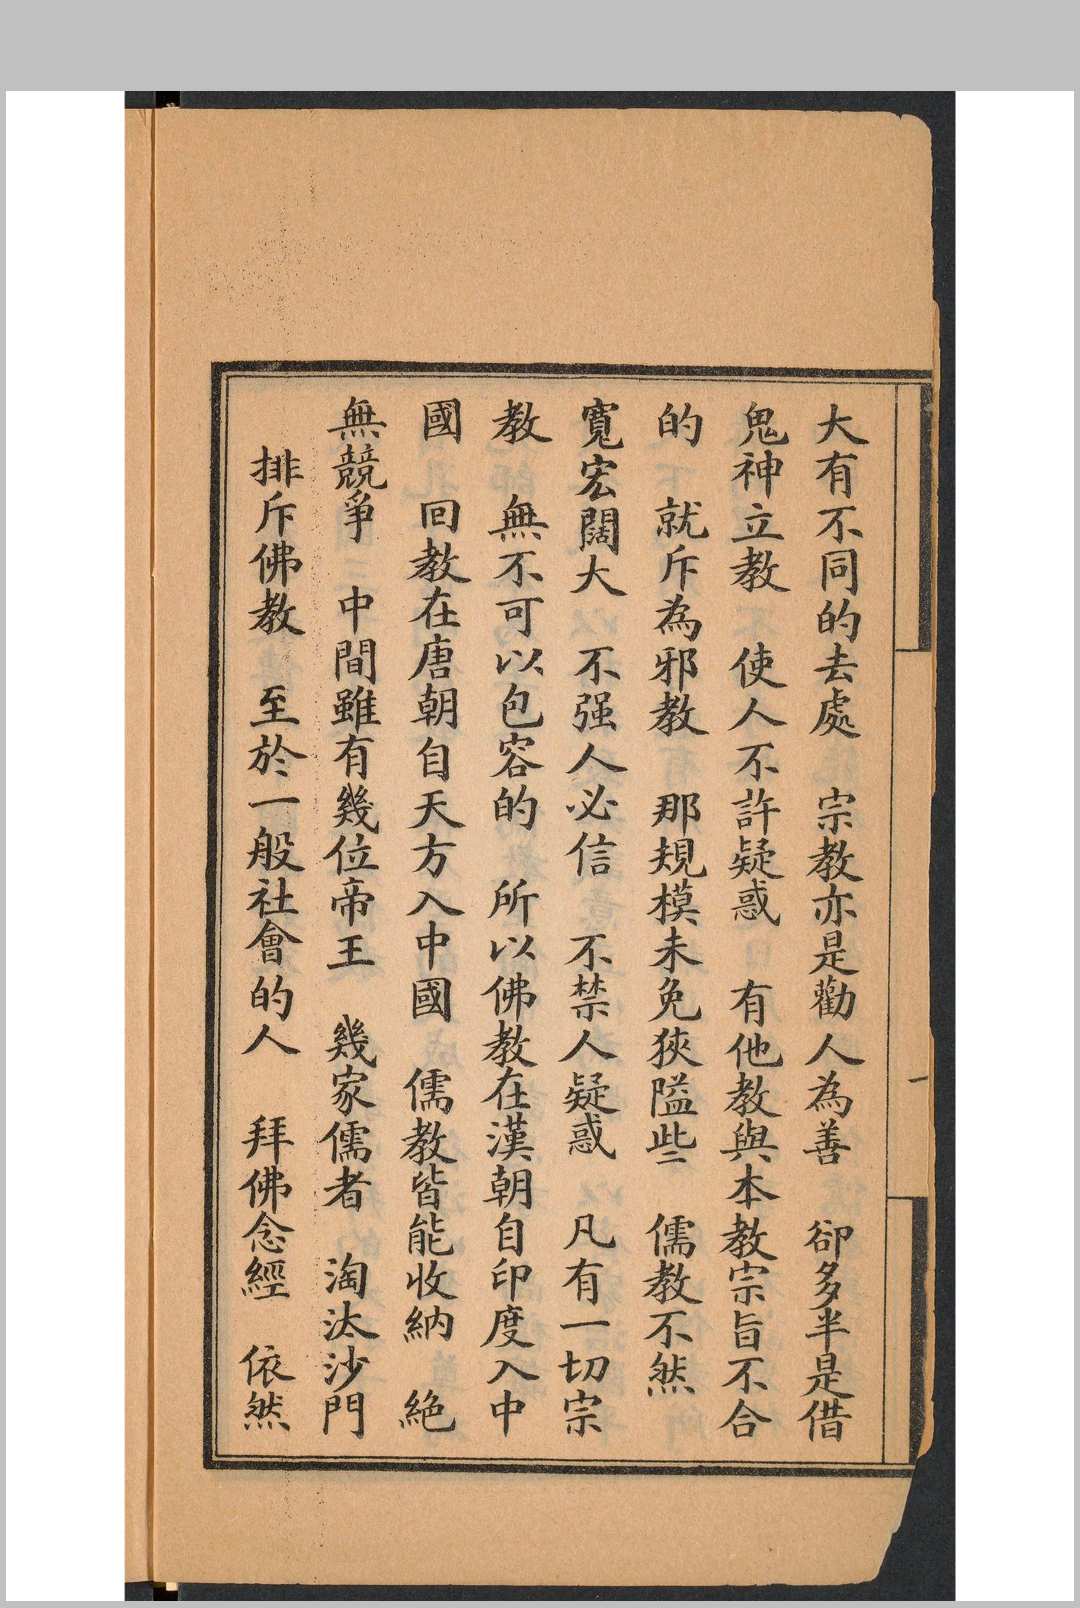 大有不同的去處　宗教亦是勸人為善　卻多半是借
鬼神立教　使人不許疑惑　有他教與本教宗旨不合
的　就斥為邪教　那規模未免狹隘些　儒教不然
寬宏闊大　不强人必信　不禁人疑惑　凡有一切宗
教　無不可以包容的　所以佛教在漢朝自印度入中
國　回教在唐朝自天方入中國　儒教皆能收納　絶
無競爭　中間雖有幾位帝王　幾家儒者　淘汰沙門
排斥佛教　至於一般社會的人　拜佛念經　依然